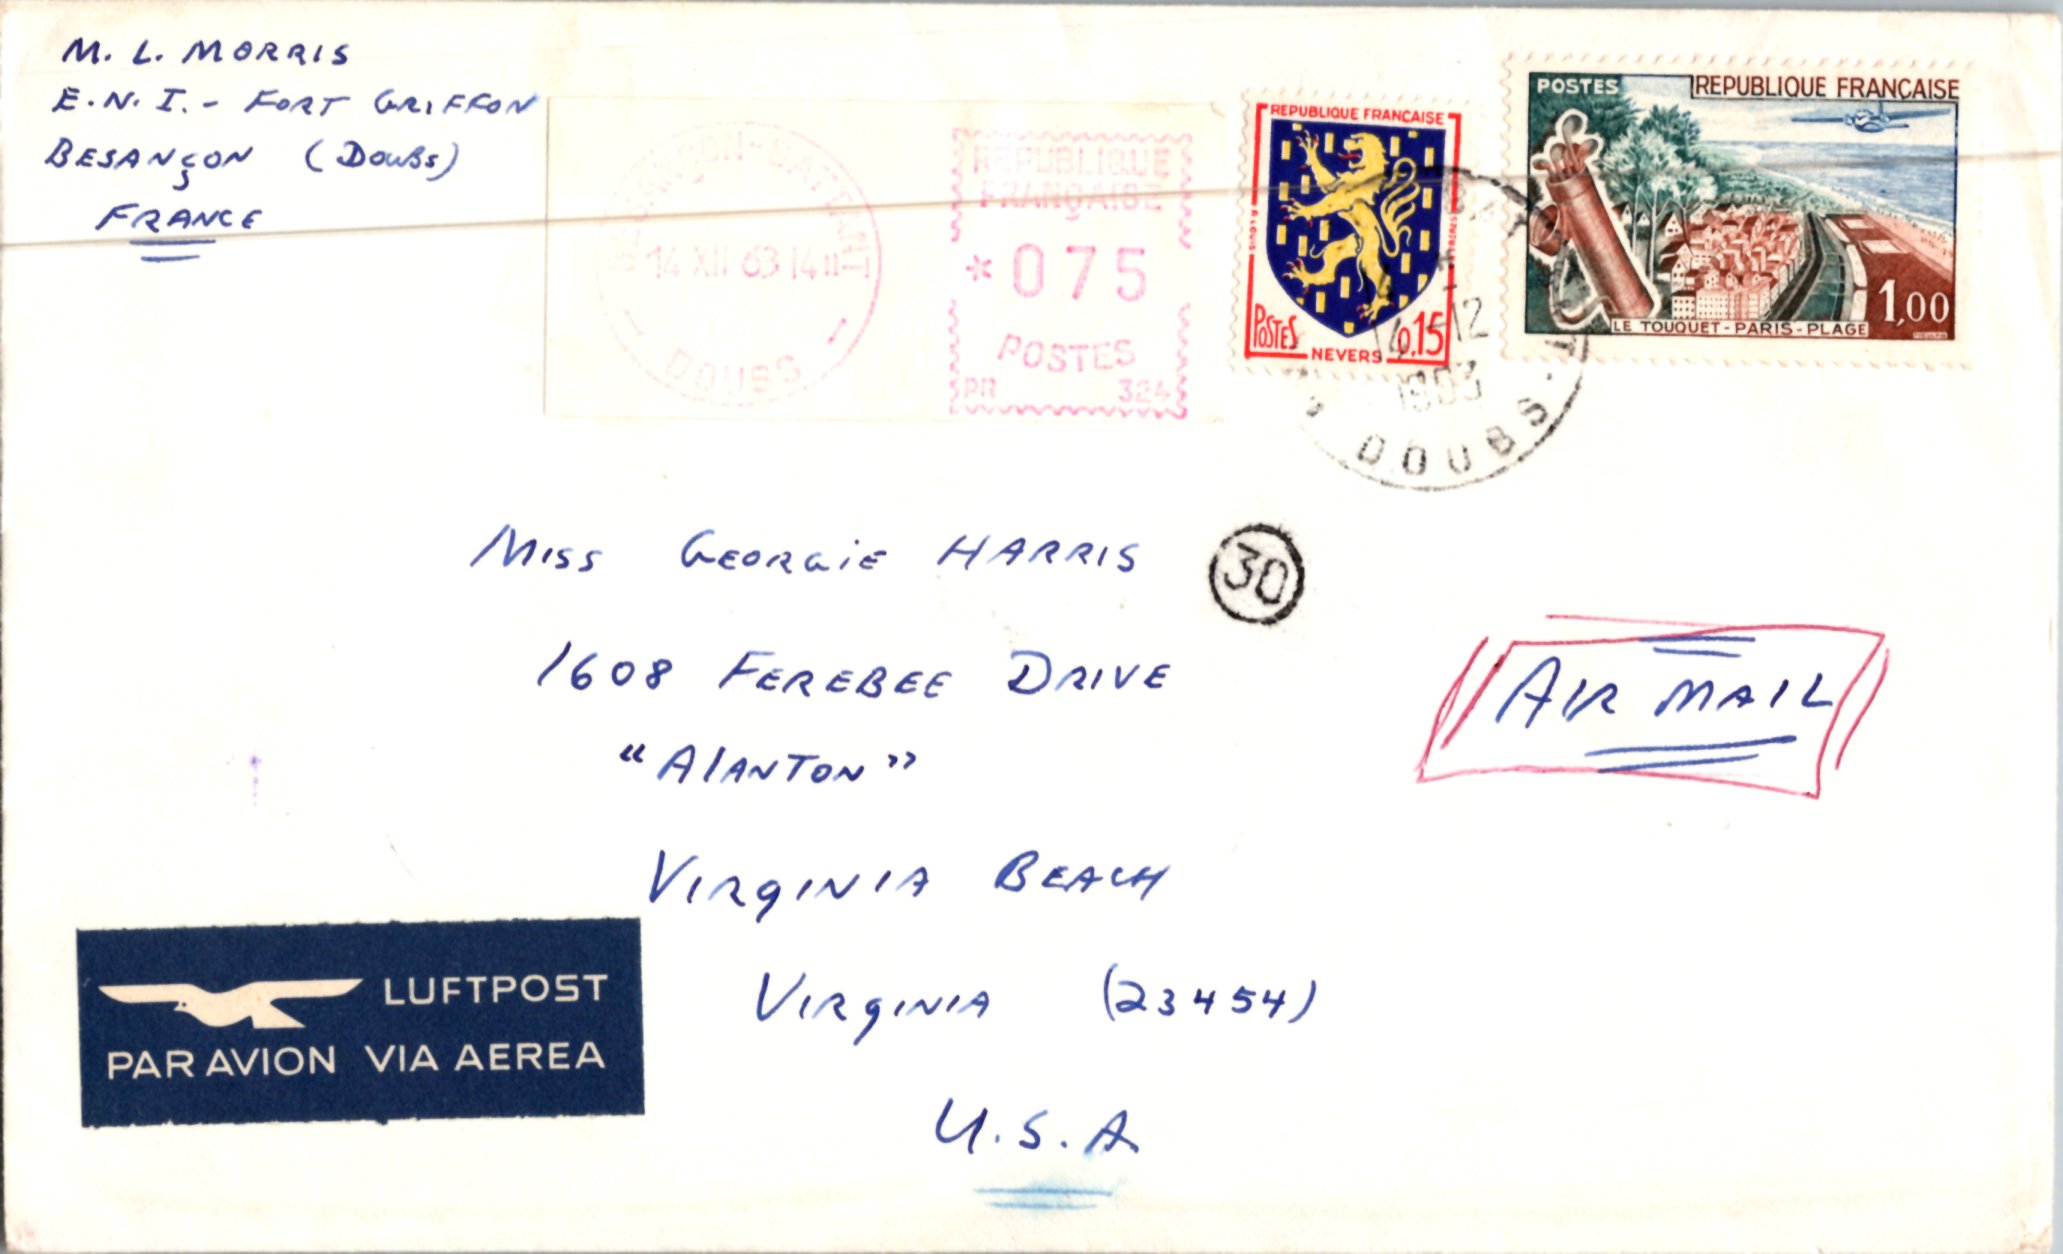 M. L. MORRIS
E.N.I. - FORT GRIFFON
BESANÇON (DOUBS)
FRANCE
BESANÇON-BATTANT
14 XII 63 14H
DOUBS
REPUBLIQUE
FRANÇAISE
*075
POSTES
PR 324
REPUBLIQUE FRANÇAISE
POSTES
0,15
NEVERS
POSTES
REPUBLIQUE FRANÇAISE
1,00
LE TOUQUET-PARIS-PLAGE
14-12
1963
DOUBS
MISS GEORGIE HARRIS
30
1608 FEREBEE DRIVE
AIR MAIL
"AlANTON"
VIRGINIA BEACH
VIRGINIA (23454)
U.S.A
LUFTPOST
PAR AVION VIA AEREA